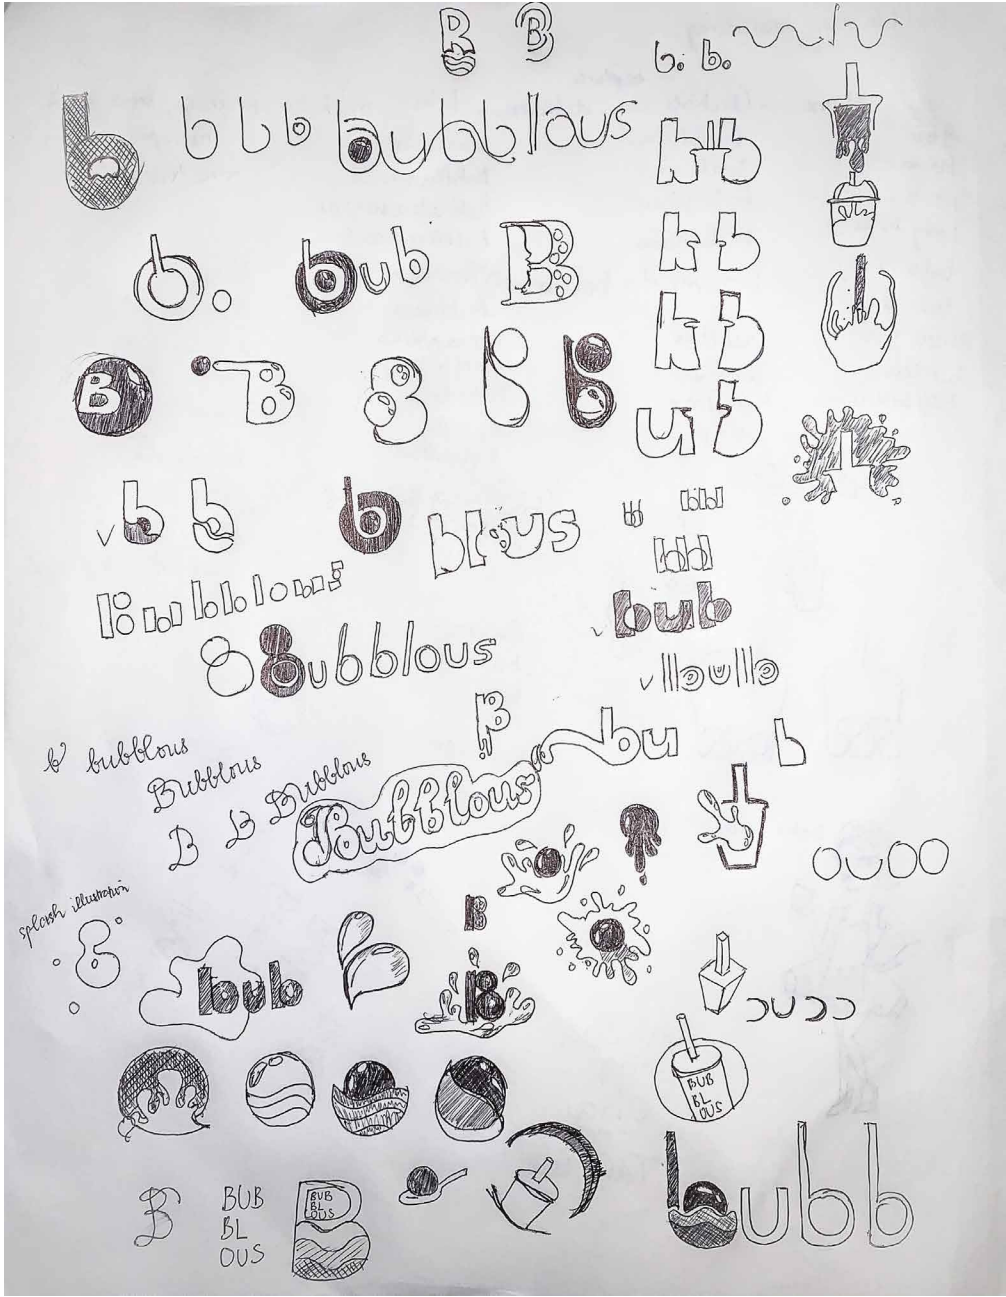 R B
b. b.
b b b b bubblous
h b
b. bub B
k b
k b
B B B b B
u b
b b b blous
bub
Bubblous
8 Bubblous
bub
B
bu b
b bubblous
Bubblous
B B Bubblous
Bubblous
splash illustration
B
B
bub B
BUB
BL
OUS
B BUB
BL
OUS
BUB
BL
OUS
bubb